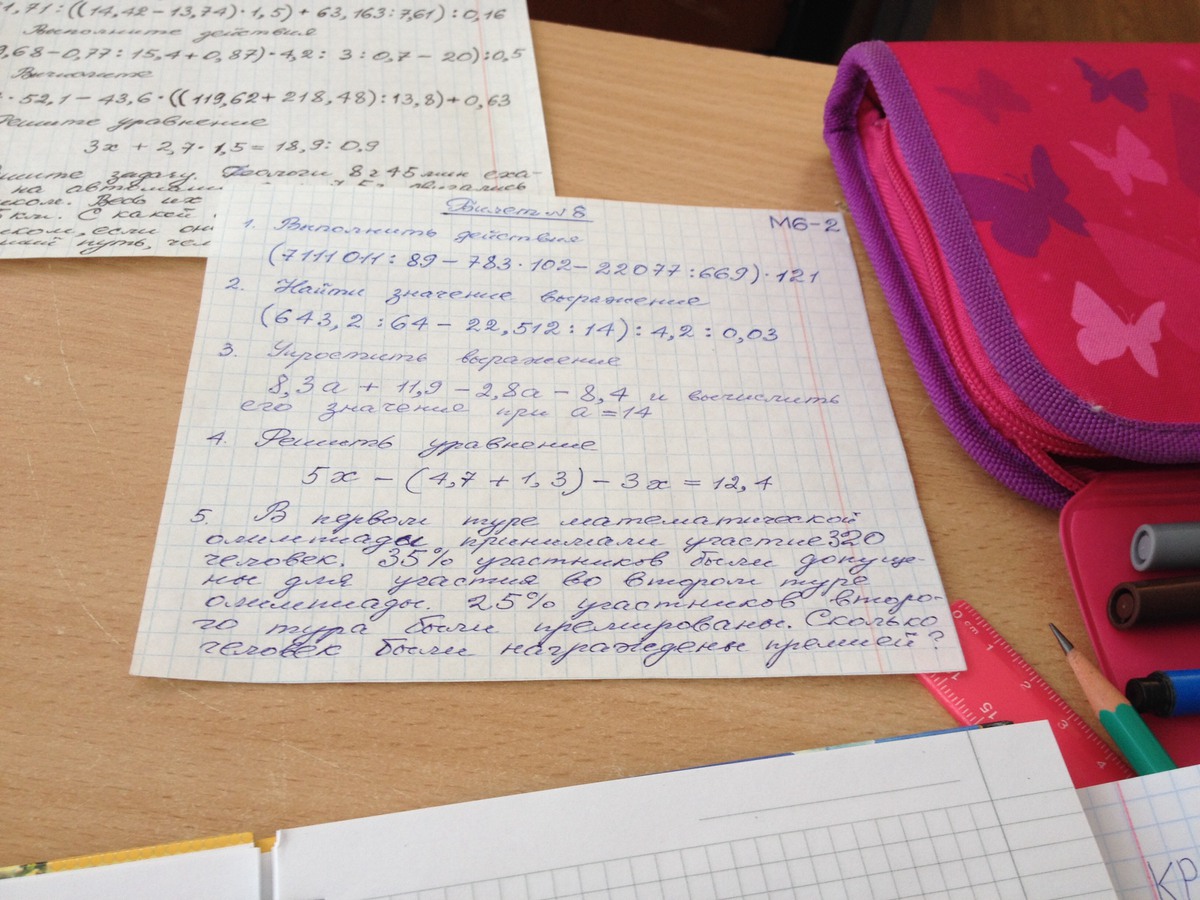 1,71 : ((14,42 − 13,74) · 1,5) + 63,163 : 7,61) : 0,16
Выполните действия
9,68 − 0,77 : 15,4 + 0,87) · 4,2 : 3 : 0,7 − 20) : 0,5
Вычислите
· 52,1 − 43,6 · ((119,62 + 218,48) : 13,8) + 0,63
Решите уравнение
3x + 2,7 · 1,5 = 18,9 : 0,9
задачу. Геологи 8 ч 45 мин еха-
на двигались
Весь их
км. С какой
если
путь, чем
Билет № 8
М6-2
1. Выполнить действия
(7111011 : 89 − 783 · 102 − 22077 : 669) · 121
2. Найти значение выражение
(643,2 : 64 − 22,512 : 14) : 4,2 : 0,03
3. Упростить выражение
8,3a + 11,9 − 2,8a − 8,4 и вычислить
его значение при a = 14
4. Решить уравнение
5x − (4,7 + 1,3) − 3x = 12,4
5. В первом туре математической
олимпиады принимали участие 320
человек. 35% участников были допуще-
ны для участия во втором туре
олимпиады. 25% участников второ-
го тура были премированы. Сколько
человек были награждены премией?
0 cm 1 2 3 4
15
КР